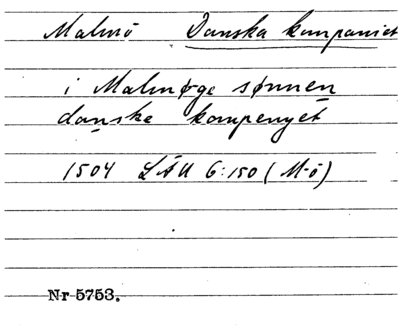 Malmö Danska kompaniet
i Malmøge sønnen
danske kompenyet
1504 LÄU 6:150 (M-ö)
Nr 5753.